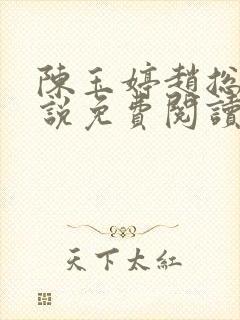 陳玉婷趙總
說免費閱讀
天下太紅